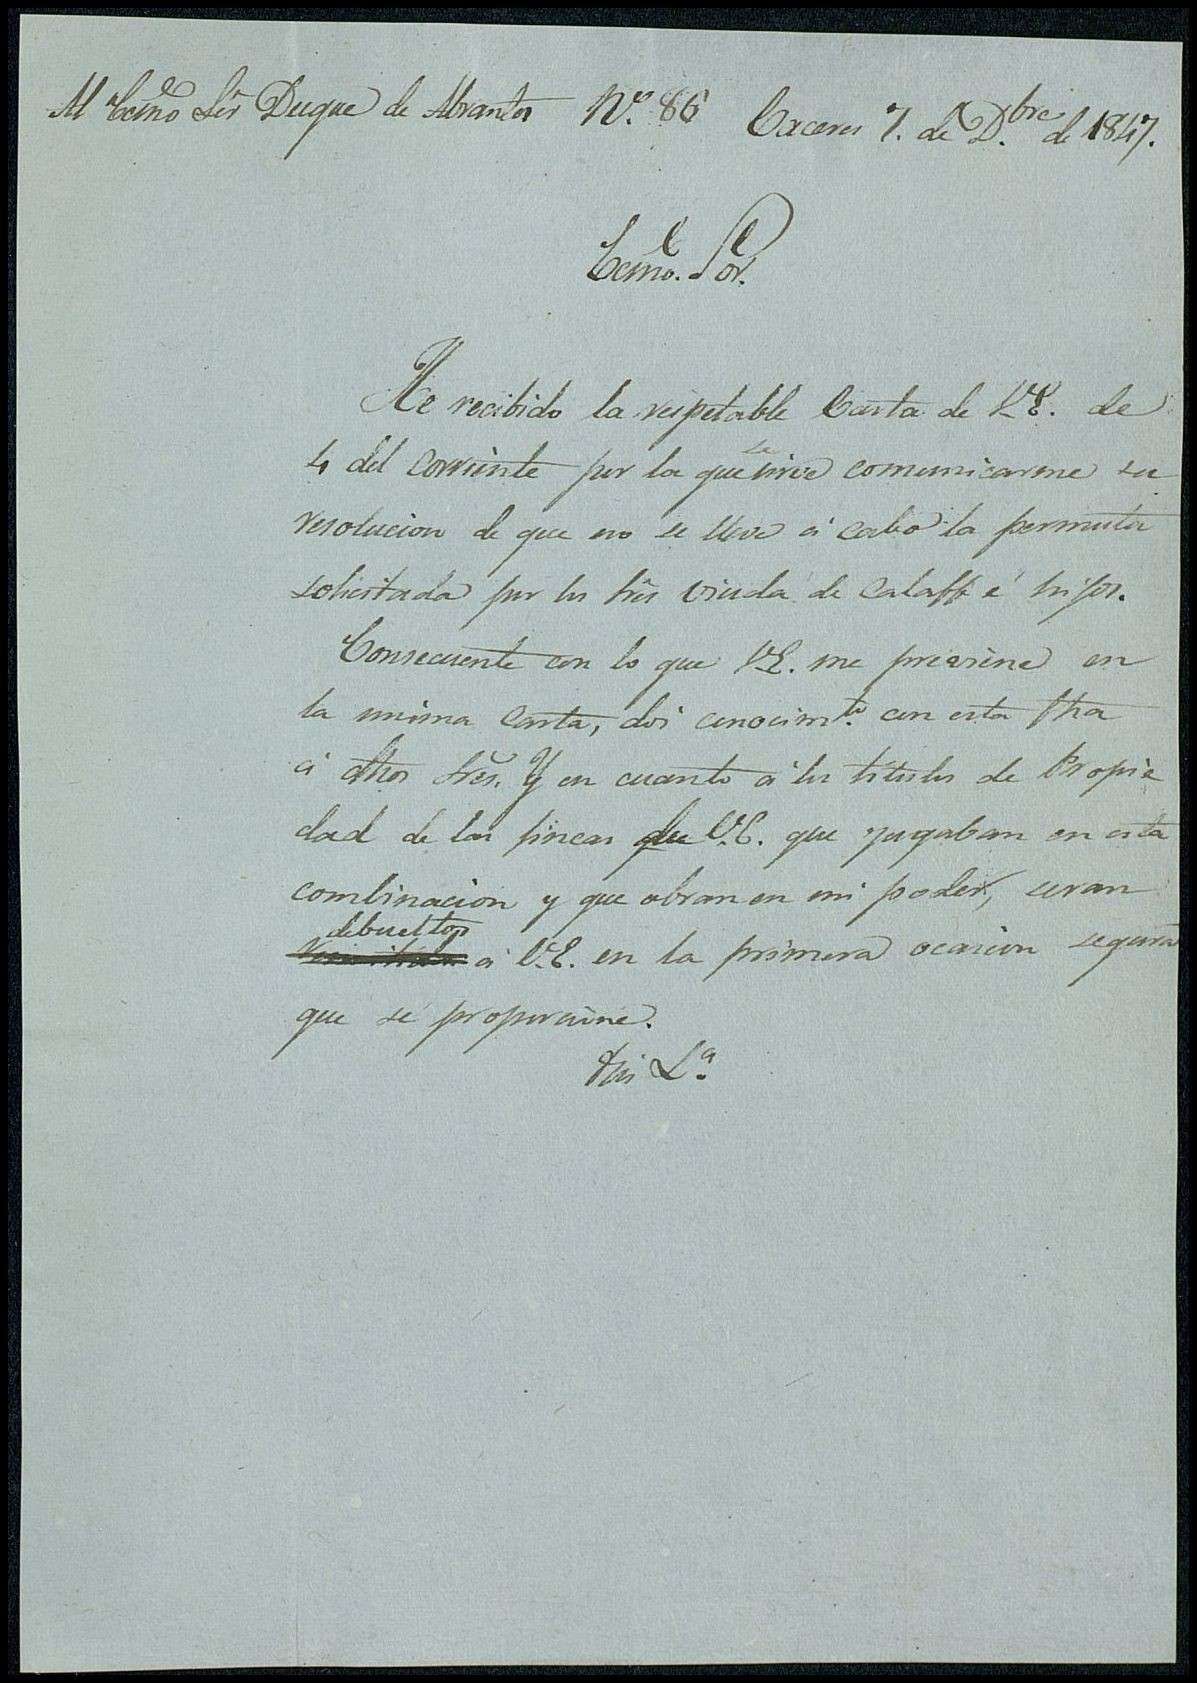 Al Ecmo Sor Duque de Abrantes Nº. 86 Caceres 7. de Dbre de 1847.
Ecmo. Sor.
He recibido la respetable Carta de V.E. de
4 del corriente por la que se sirve comunicarme su
resolucion de que no se lleve á cabo la permuta
solicitada por los Sres viuda de Calaff é hijos.
Consecuente con lo que V.E. me previene en
la misma Carta, doi conocimto. con esta fha
á dhos Sres. Y en cuanto á los titulos de Propie
dad de las fincas de V.E. que jugaban en esta
combinacion y que obran en mi poder, seran
debueltos
á V.E. en la primera ocasion segura
que se proporcione.